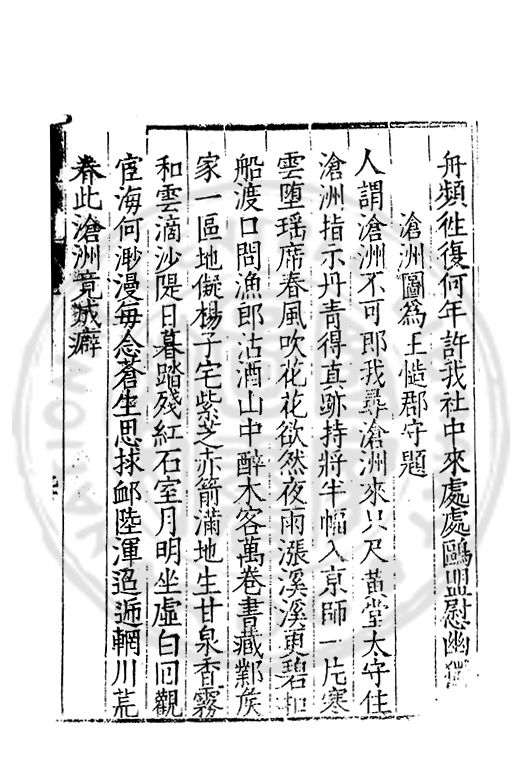 舟頻徃復何年許我社中來處處鷗盟慰幽
滄洲圖為王愷郡守題
人謂滄洲不可即我尋滄洲來只尺黃堂太守住
滄洲指示丹青得真跡持將半幅入京師一片寒
雲墮瑤席春風吹花花欲然夜雨漲溪溪更碧扣
船渡口問漁郎沽酒山中醉木客萬卷書藏鄴矦
家一區地儗楊子宅紫芝赤箭滿地生甘泉香霧
和雲滴沙隄日暮踏殘紅石室月明坐虛白囬觀
宦海何渺漫每念蒼生思捄卹陸渾迢遞輞川荒
眷此滄洲竟成癖